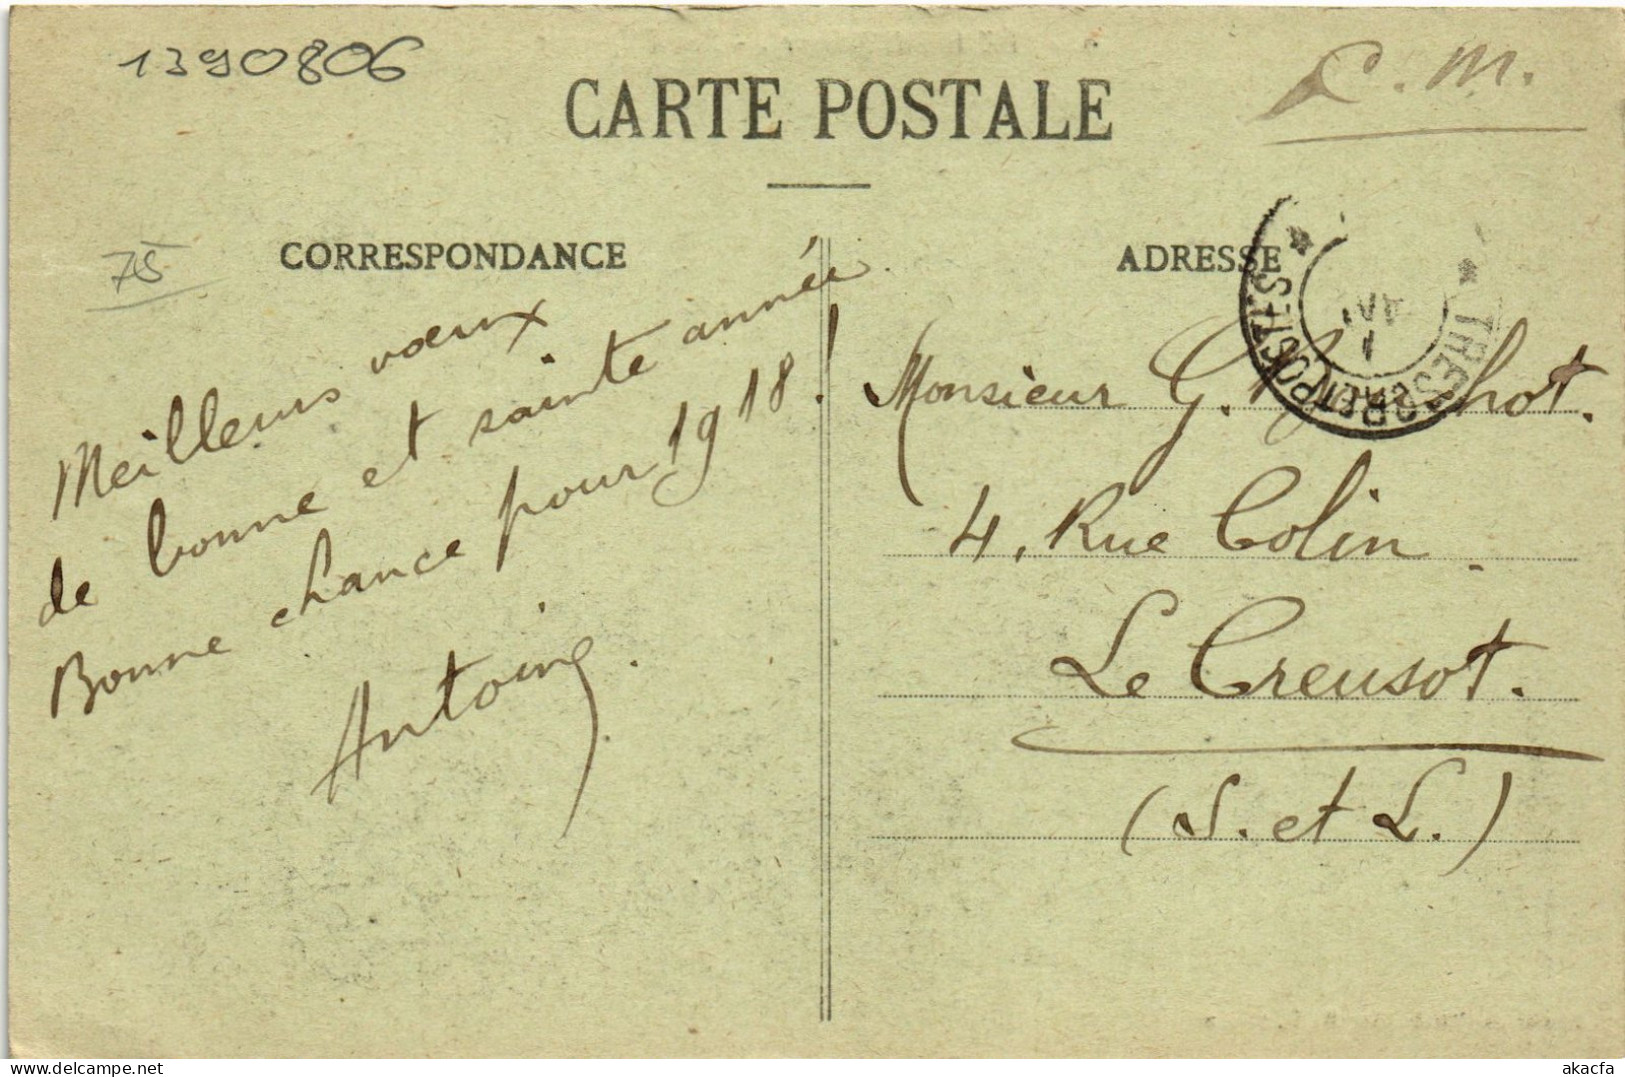 1390806
C. M.
CARTE POSTALE
75
CORRESPONDANCE
ADRESSE
TRESOR ET POSTES
Meilleurs vœux
de bonne et sainte année
Bonne chance pour 1918!
Antoine.
Monsieur G.
4, Rue Colin.
Le Creusot.
(S. et L.)
www.delcampe.net
akacfa